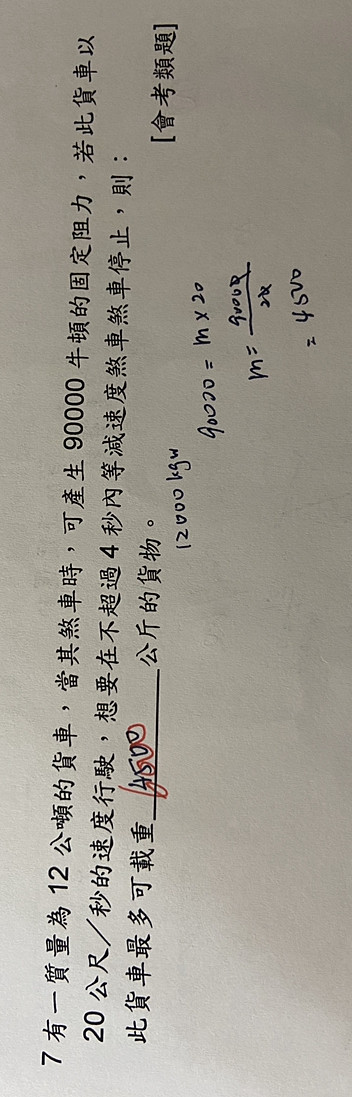 7 有一質量為 12 公噸的貨車,當其煞車時,可產生 90000 牛頓的固定阻力,若此貨車以
20 公尺/秒的速度行駛,想要在不超過 4 秒內等減速度煞車煞車停止,則:
此貨車最多可載重 4500 公斤的貨物。 [會考類題]
12000 kgw
90000 = m × 20
m = 90000/20
= 4500